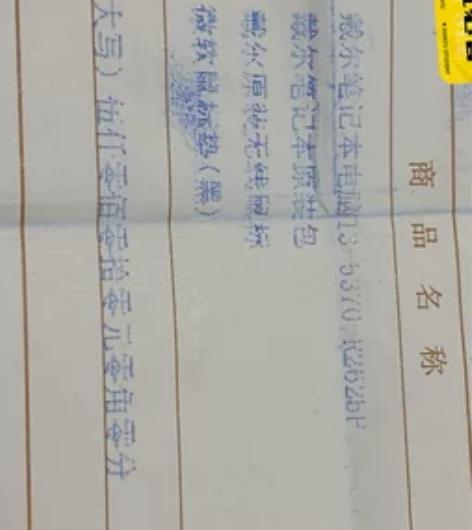 商品名称
戴尔笔记本电脑13-5370-R2625P
戴尔笔记本原装包
戴尔原装无线鼠标
微软鼠标垫(黑)
大写)伍仟零佰零拾零元零角零分